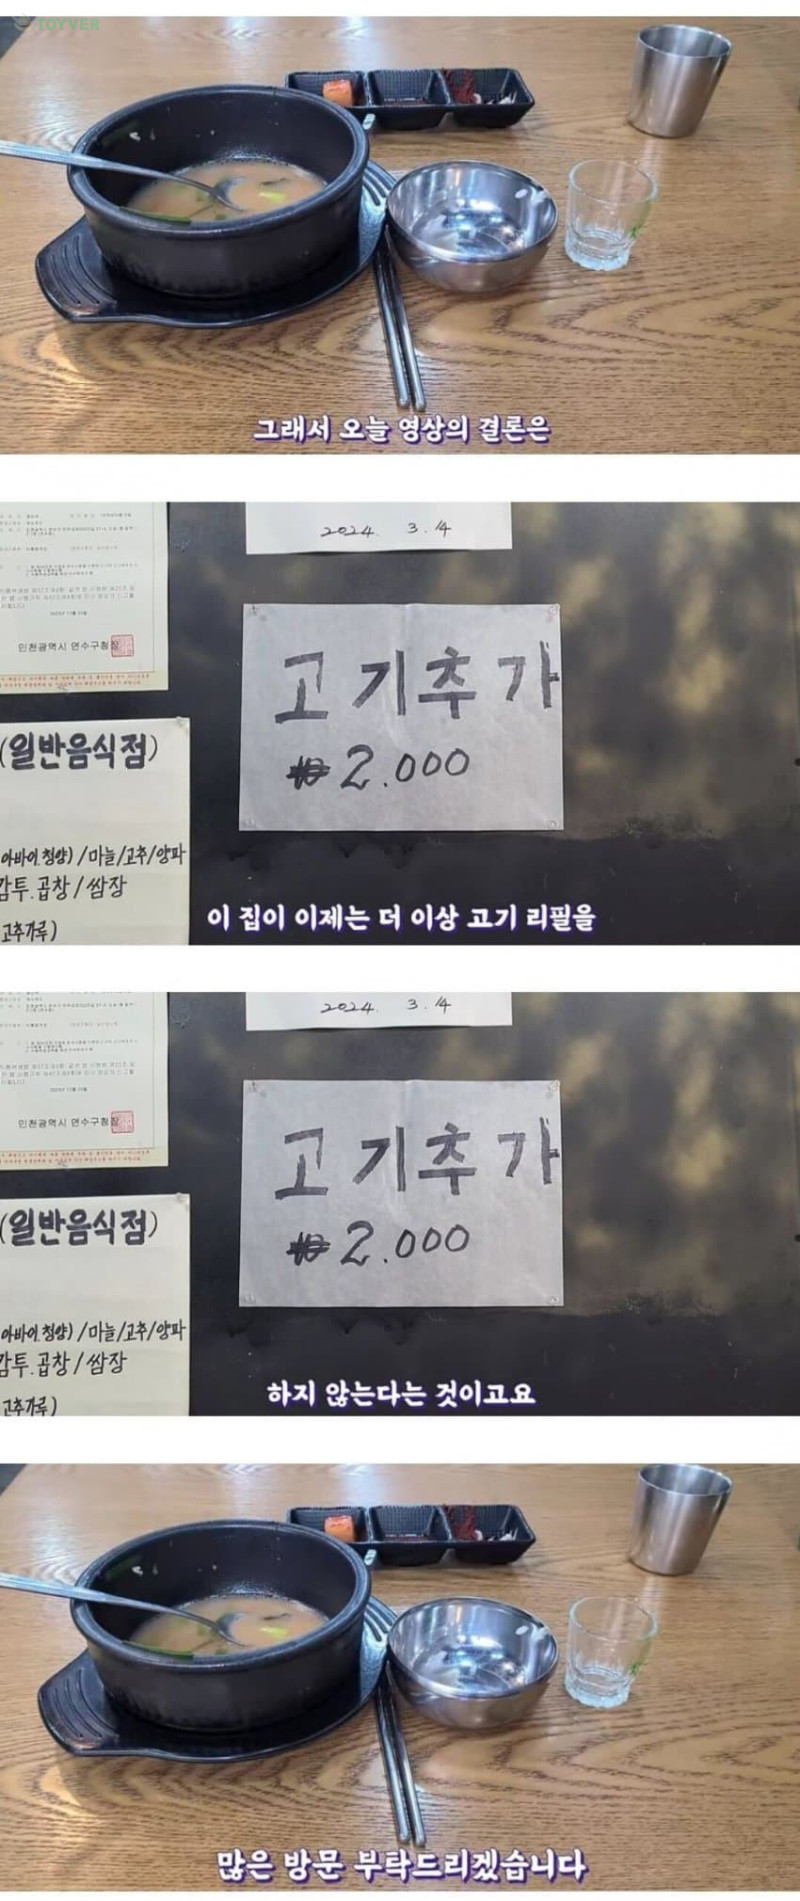 TOYVER
그래서 오늘 영상의 결론은
2024. 3. 14
인천광역시 연수구청장
고기추가
₩2.000
(일반음식점)
아바이.청양) /마늘/고추/양파
감투.곱창 / 쌈장
고추가루)
이 집이 이제는 더 이상 고기 리필을
2024. 3. 14
인천광역시 연수구청장
고기추가
₩2.000
(일반음식점)
아바이.청양) /마늘/고추/양파
감투.곱창 / 쌈장
고추가루)
하지 않는다는 것이고요
많은 방문 부탁드리겠습니다